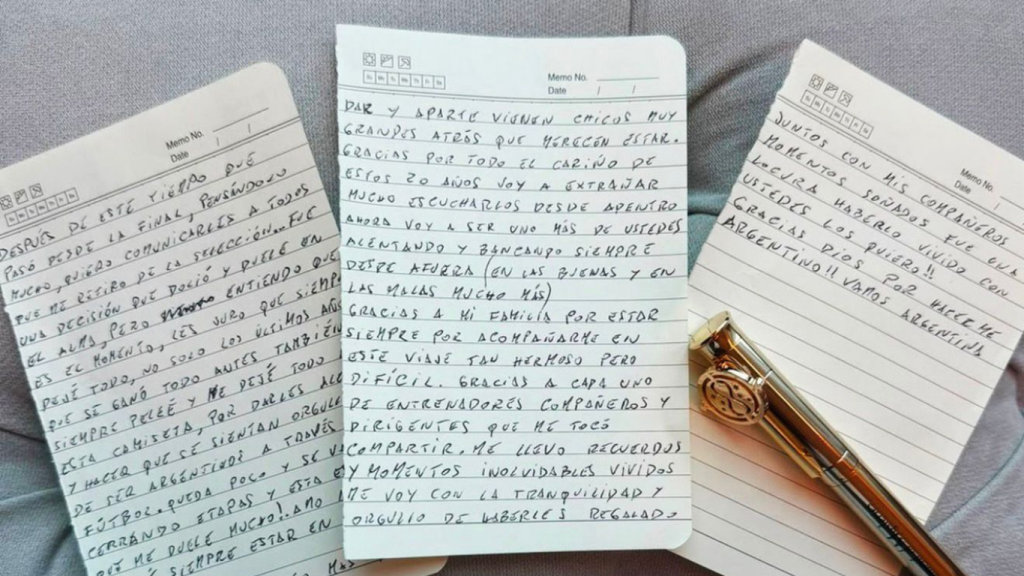 Memo No.
Date / /
DESPUÉS DE ESTE TIEMPO QUE
PASÓ DESDE LA FINAL, PENSÁNDOLO
MUCHO, QUIERO COMUNICARLES A TODOS
QUE ME RETIRO DE LA SELECCIÓN.. FUE
UNA DECISIÓN QUE DOLIÓ Y DUELE EN
EL ALMA, PERO ENTIENDO QUE
ES EL MOMENTO, LES JURO QUE SIEMPRE
DEJÉ TODO, NO SOLO LOS ÚLTIMOS AÑOS
QUE SE GANÓ TODO ANTES TAMBIÉN
SIEMPRE PELEÉ Y ME DEJÉ TODO
ESTA CAMISETA, POR DARLES ALE
Y HACER QUE SE SIENTAN ORGULL
DE SER ARGENTINOS A TRAVÉS
FÚTBOL. QUEDA POCO Y SE V
CERRANDO ETAPAS Y ESTA E
QUE ME DUELE MUCHO! AMO
SIEMPRE ESTAR EN
MÁS
Memo No.
Date / /
DAR Y APARTE VIENEN CHICOS MUY
GRANDES ATRÁS QUE MERECEN ESTAR.
GRACIAS POR TODO EL CARIÑO DE
ESTOS 20 AÑOS VOY A EXTRAÑAR
MUCHO ESCUCHARLOS DESDE ADENTRO
AHORA VOY A SER UNO MÁS DE USTEDES
ALENTANDO Y BANCANDO SIEMPRE
DESDE AFUERA (EN LAS BUENAS Y EN
LAS MALAS MUCHO MÁS)
GRACIAS A MI FAMILIA POR ESTAR
SIEMPRE POR ACOMPAÑARME EN
ESTE VIAJE TAN HERMOSO PERO
DIFÍCIL. GRACIAS A CADA UNO
DE ENTRENADORES COMPAÑEROS Y
DIRIGENTES QUE ME TOCÓ
COMPARTIR. ME LLEVO RECUERDOS
Y MOMENTOS INOLVIDABLES VIVIDOS
ME VOY CON LA TRANQUILIDAD Y
ORGULLO DE HABERLES REGALADO
Memo No.
Date / /
JUNTOS CON MIS COMPAÑEROS
MOMENTOS SOÑADOS FUE UNA
LOCURA HABERLO VIVIDO CON
USTEDES LOS QUIERO!!
GRACIAS DIOS POR HACERME
ARGENTINO!! VAMOS ARGENTINA